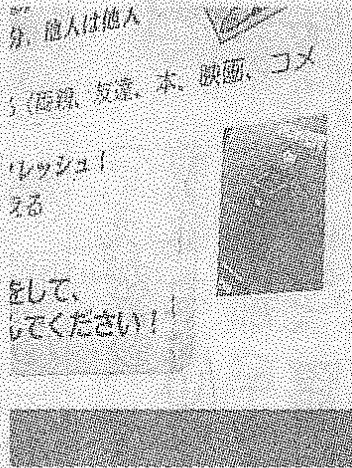 分、他人は他人
（面親、友達、本、映画、コメ
レッシュ！
える
をして、
してください！